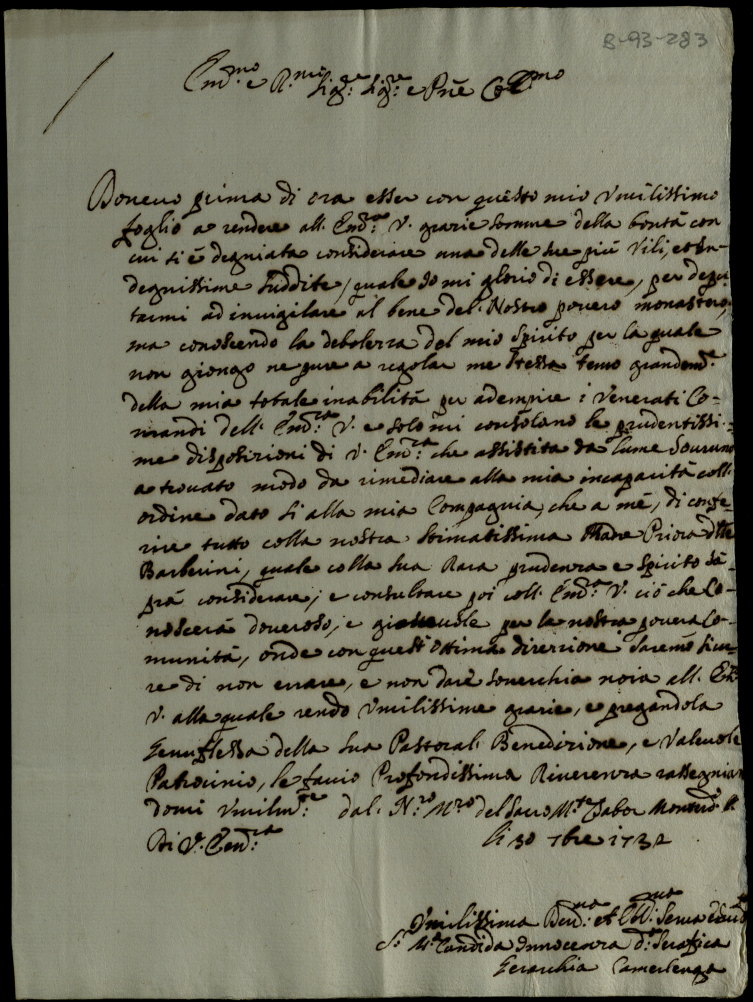 B-93-283
Em.mo e R.mo Sig.re Sig.re e Pñe
Dovevo prima di ora esser con questo mio Umilissimo
foglio a rendere all. Em.za V. grazie somme della bontà con
cui si è degniata considerare una delle sue più Vili, et In-
degnissime suddite, quale Io mi glorio di essere, per depu-
tarmi ad invigilare al bene del. Nostro povero monastero,
ma conoscendo la debolezza del mio Spirito per la quale
non giongo ne pure a regolar me stessa temo grandem.te
della mia totale inabilità per adempire i Venerati Co-
mandi dell. Em.za V. e solo mi consolano le prudentissi-
me disposizioni di V. Em.za che assistita da lume Sovrano
a trovato modo da rimediare alla mia incapacità coll.
ordine dato si alla mia Compagnia, che a mè, di confe-
rire tutto colla nostra Stimatissima Madre Priora
Barberini, quale colla sua Rara prudenza e spirito sa-
prà considerare, e consultare poi coll. Em.za V. ciò che Co-
noscerà doveroso, e giovevole per la nostra povera Co-
munità, onde con quest'Ottima direzione saremo sicu-
re di non errare, e non dare soverchia noia all. Em.za
V. alla quale rendo Umilissime grazie, e pregandola
Genuflessa della sua Pastoral. Benedizione, e Valevole
Patrocinio, le faccio Profondissima Riverenza rassegnian
domi Umilm.te dal. N.ro M.ro del Sacro M.te Tabor
Di V. Em.za li 30 7bre 1732
Umilissima et Serva
S. M.a Candida Innocenza d.a Serafica
Gerarchia Camerlenga